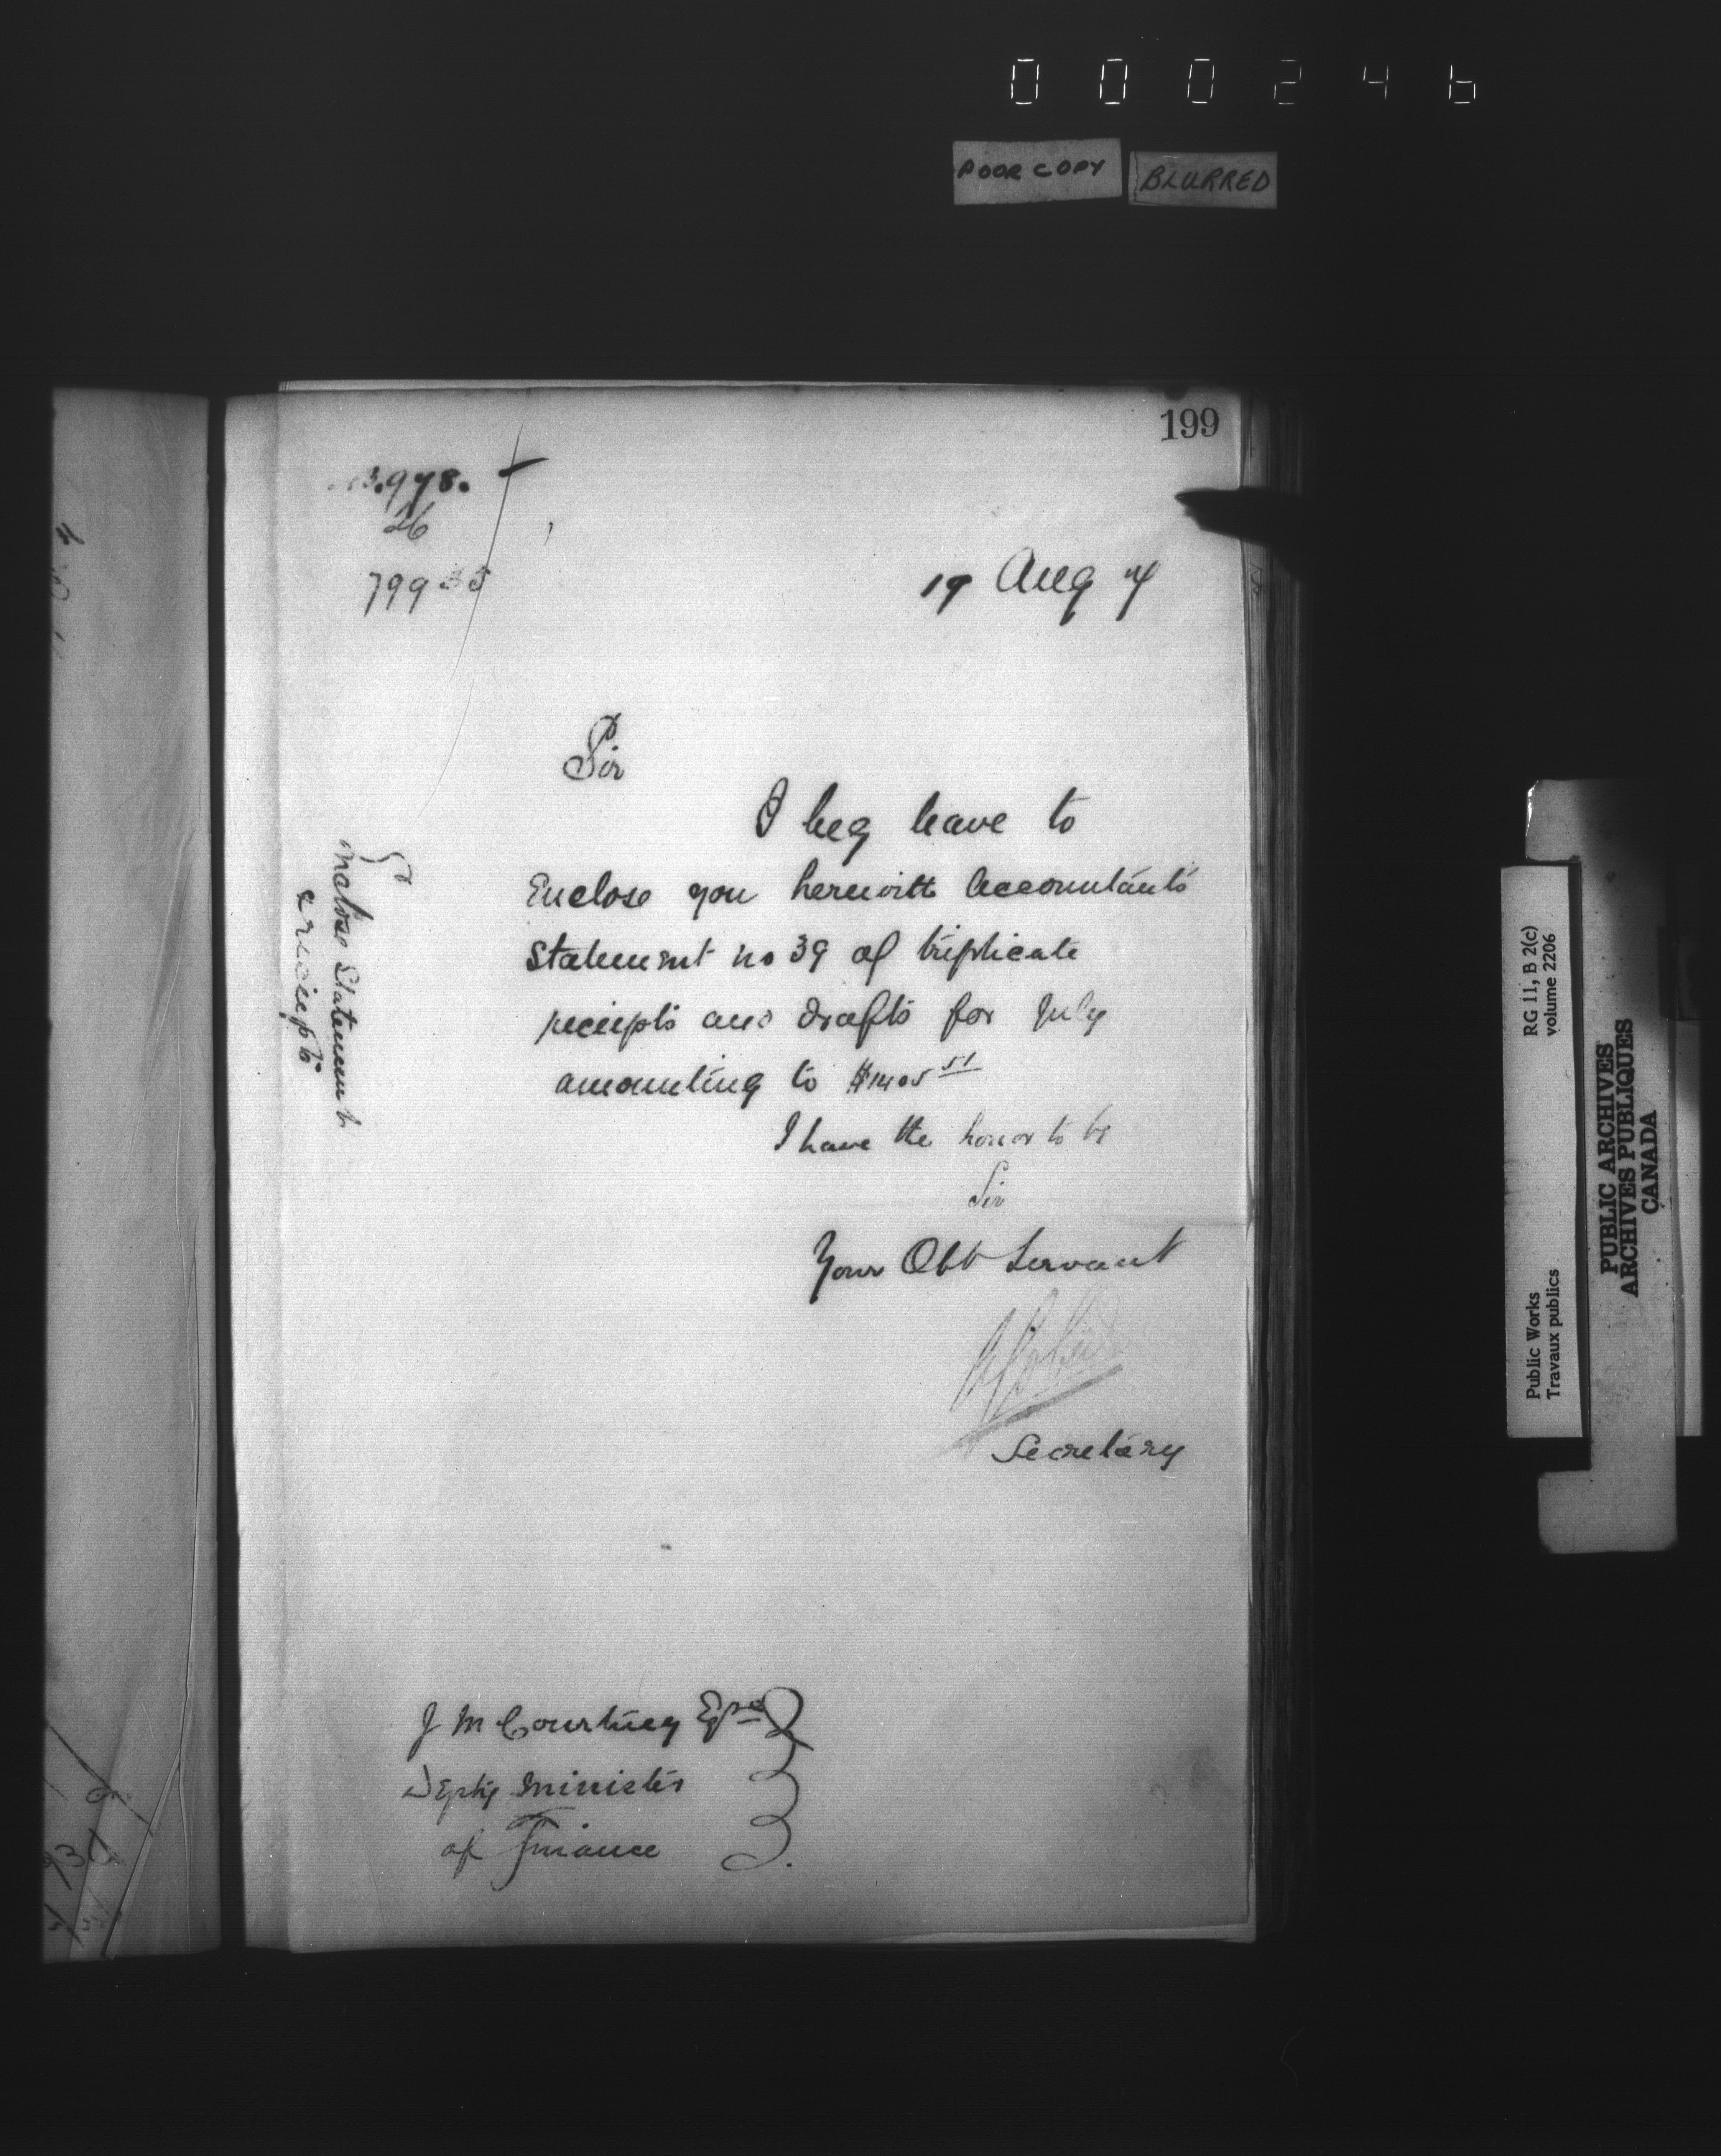 000246
POOR COPY BLURRED
199
3.978.
26
79935
19 Aug
Sir
I beg leave to
Enclose you herewith Accountants
Statement no 39 of triplicate
receipts and drafts for July
amounting to $1405 51
I have the honor to be
Sir
Your Obt Servant
Secretary
Enclose Statement
& receipts
J M Courtney Esqre
Depty Minister
of Finance
RG 11, B 2(c)
volume 2206
Public Works
Travaux publics
PUBLIC ARCHIVES
ARCHIVES PUBLIQUES
CANADA